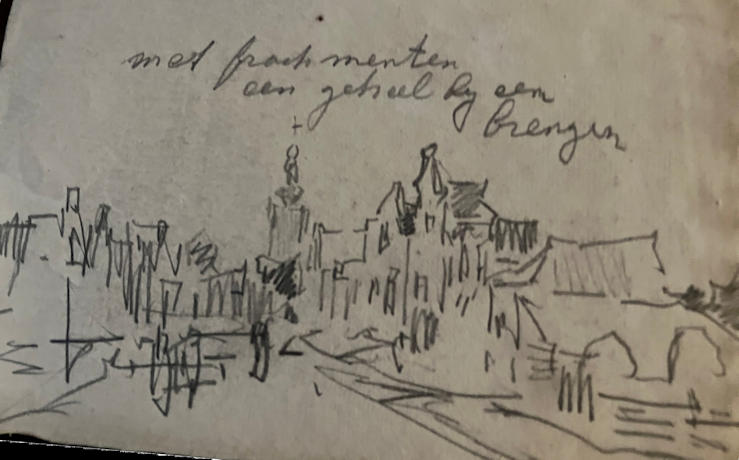 met frachmenten
een geheel by een
brengen